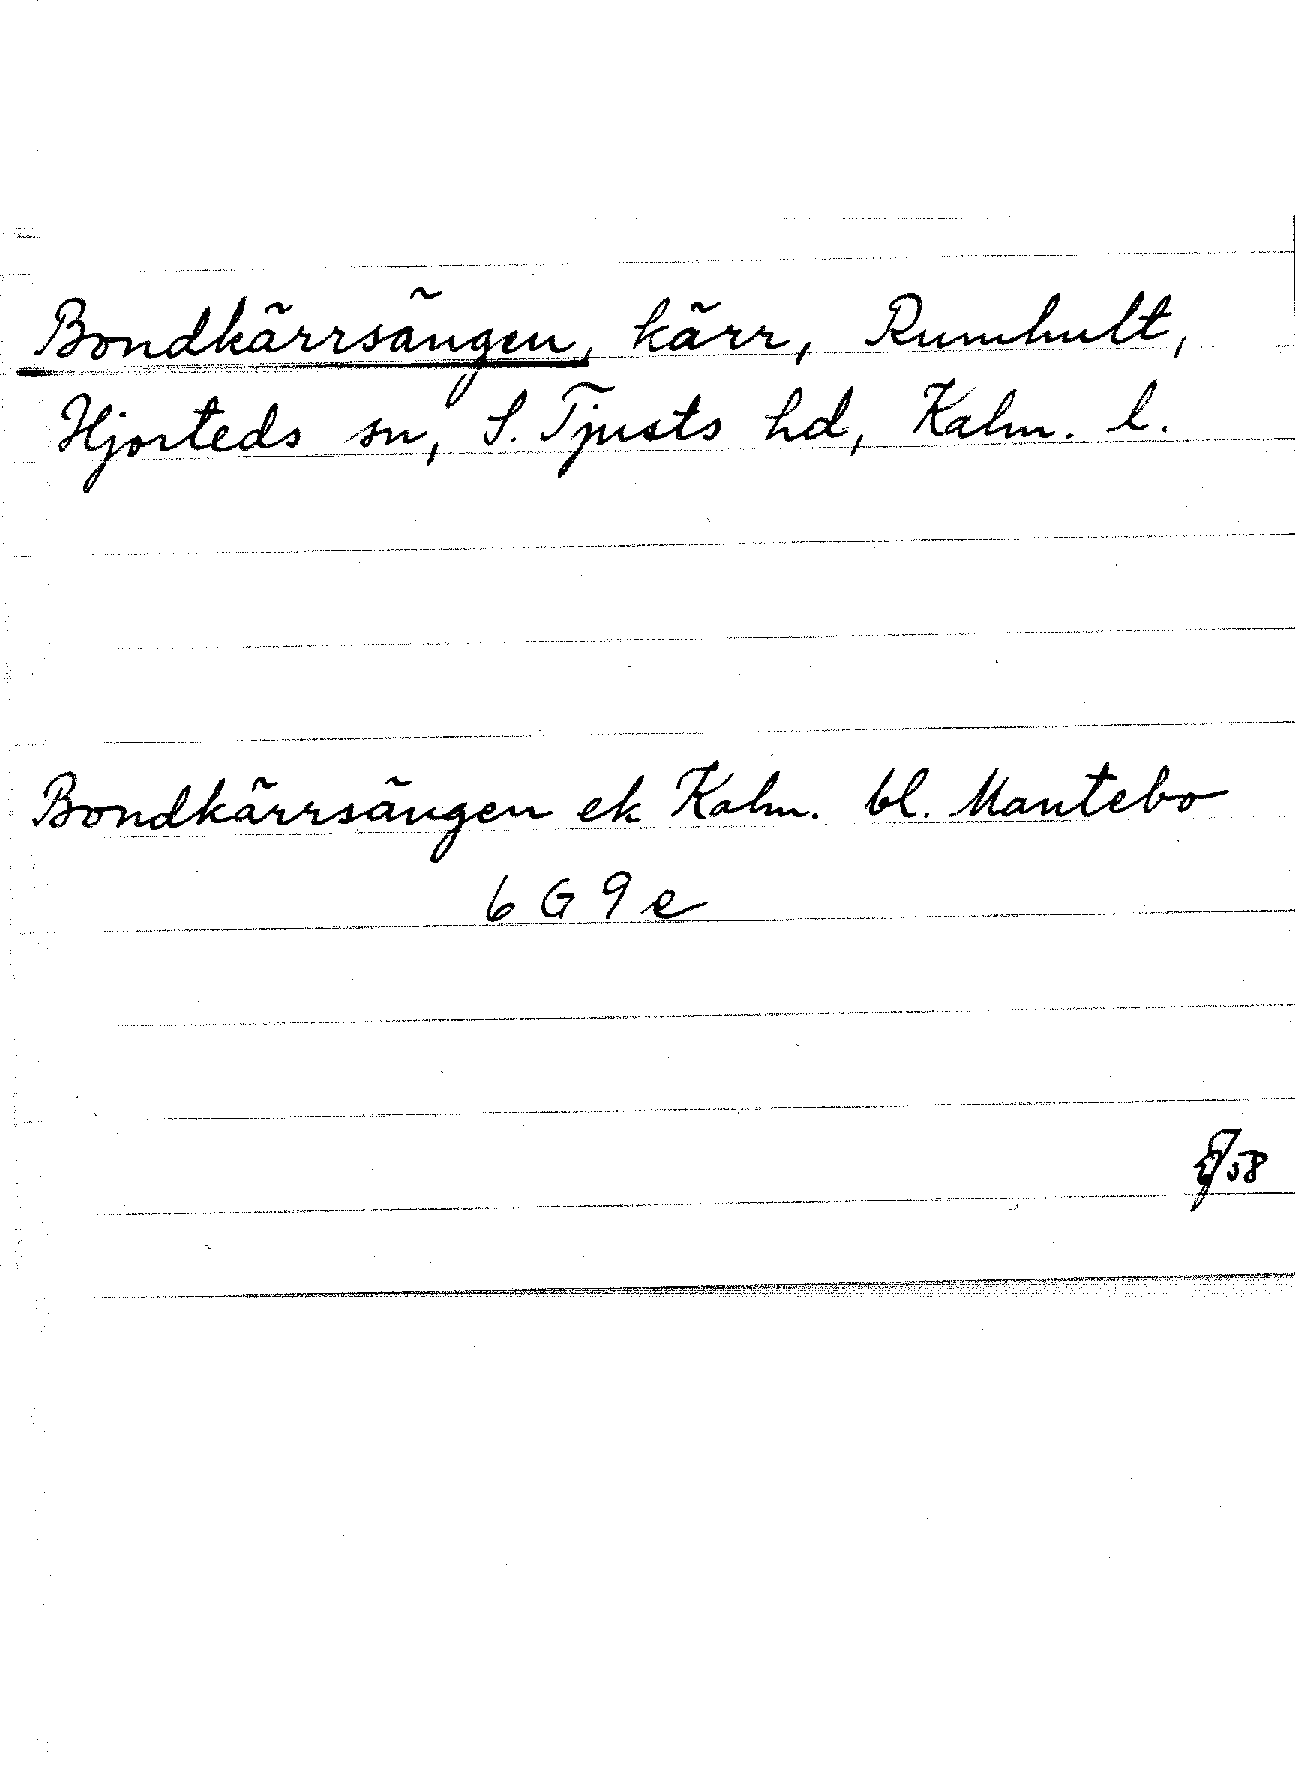 Bondkärrsängen, kärr, Rumhult,
Hjorteds sn, S. Tjusts hd, Kalm. l.
Bondkärrsängen ek Kalm. bl. Mantebo
6 G 9 e
58